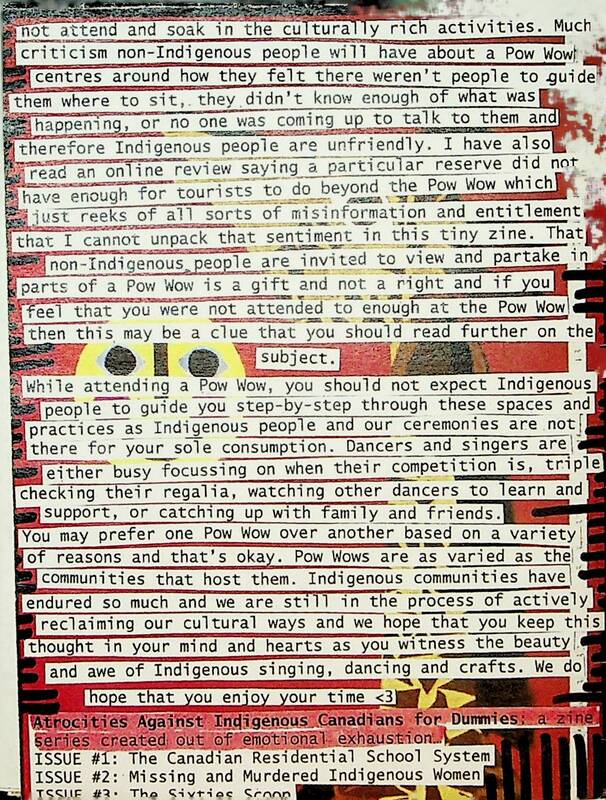 not attend and soak in the culturally rich activities. Much
criticism non-Indigenous people will have about a Pow Wow
centres around how they felt there weren't people to guide
them where to sit, they didn't know enough of what was
happening, or no one was coming up to talk to them and
therefore Indigenous people are unfriendly. I have also
read an online review saying a particular reserve did not
have enough for tourists to do beyond the Pow Wow which
just reeks of all sorts of misinformation and entitlement
that I cannot unpack that sentiment in this tiny zine. That
non-Indigenous people are invited to view and partake in
parts of a Pow Wow is a gift and not a right and if you
feel that you were not attended to enough at the Pow Wow
then this may be a clue that you should read further on the
subject.
While attending a Pow Wow, you should not expect Indigenous
people to guide you step-by-step through these spaces and
practices as Indigenous people and our ceremonies are not
there for your sole consumption. Dancers and singers are
either busy focussing on when their competition is, triple
checking their regalia, watching other dancers to learn and
support, or catching up with family and friends.
You may prefer one Pow Wow over another based on a variety
of reasons and that's okay. Pow Wows are as varied as the
communities that host them. Indigenous communities have
endured so much and we are still in the process of actively
reclaiming our cultural ways and we hope that you keep this
thought in your mind and hearts as you witness the beauty
and awe of Indigenous singing, dancing and crafts. We do
hope that you enjoy your time <3
Atrocities Against Indigenous Canadians for Dummies: a zine
series created out of emotional exhaustion.
ISSUE #1: The Canadian Residential School System
ISSUE #2: Missing and Murdered Indigenous Women
ISSUE #3: The Sixties Scoop